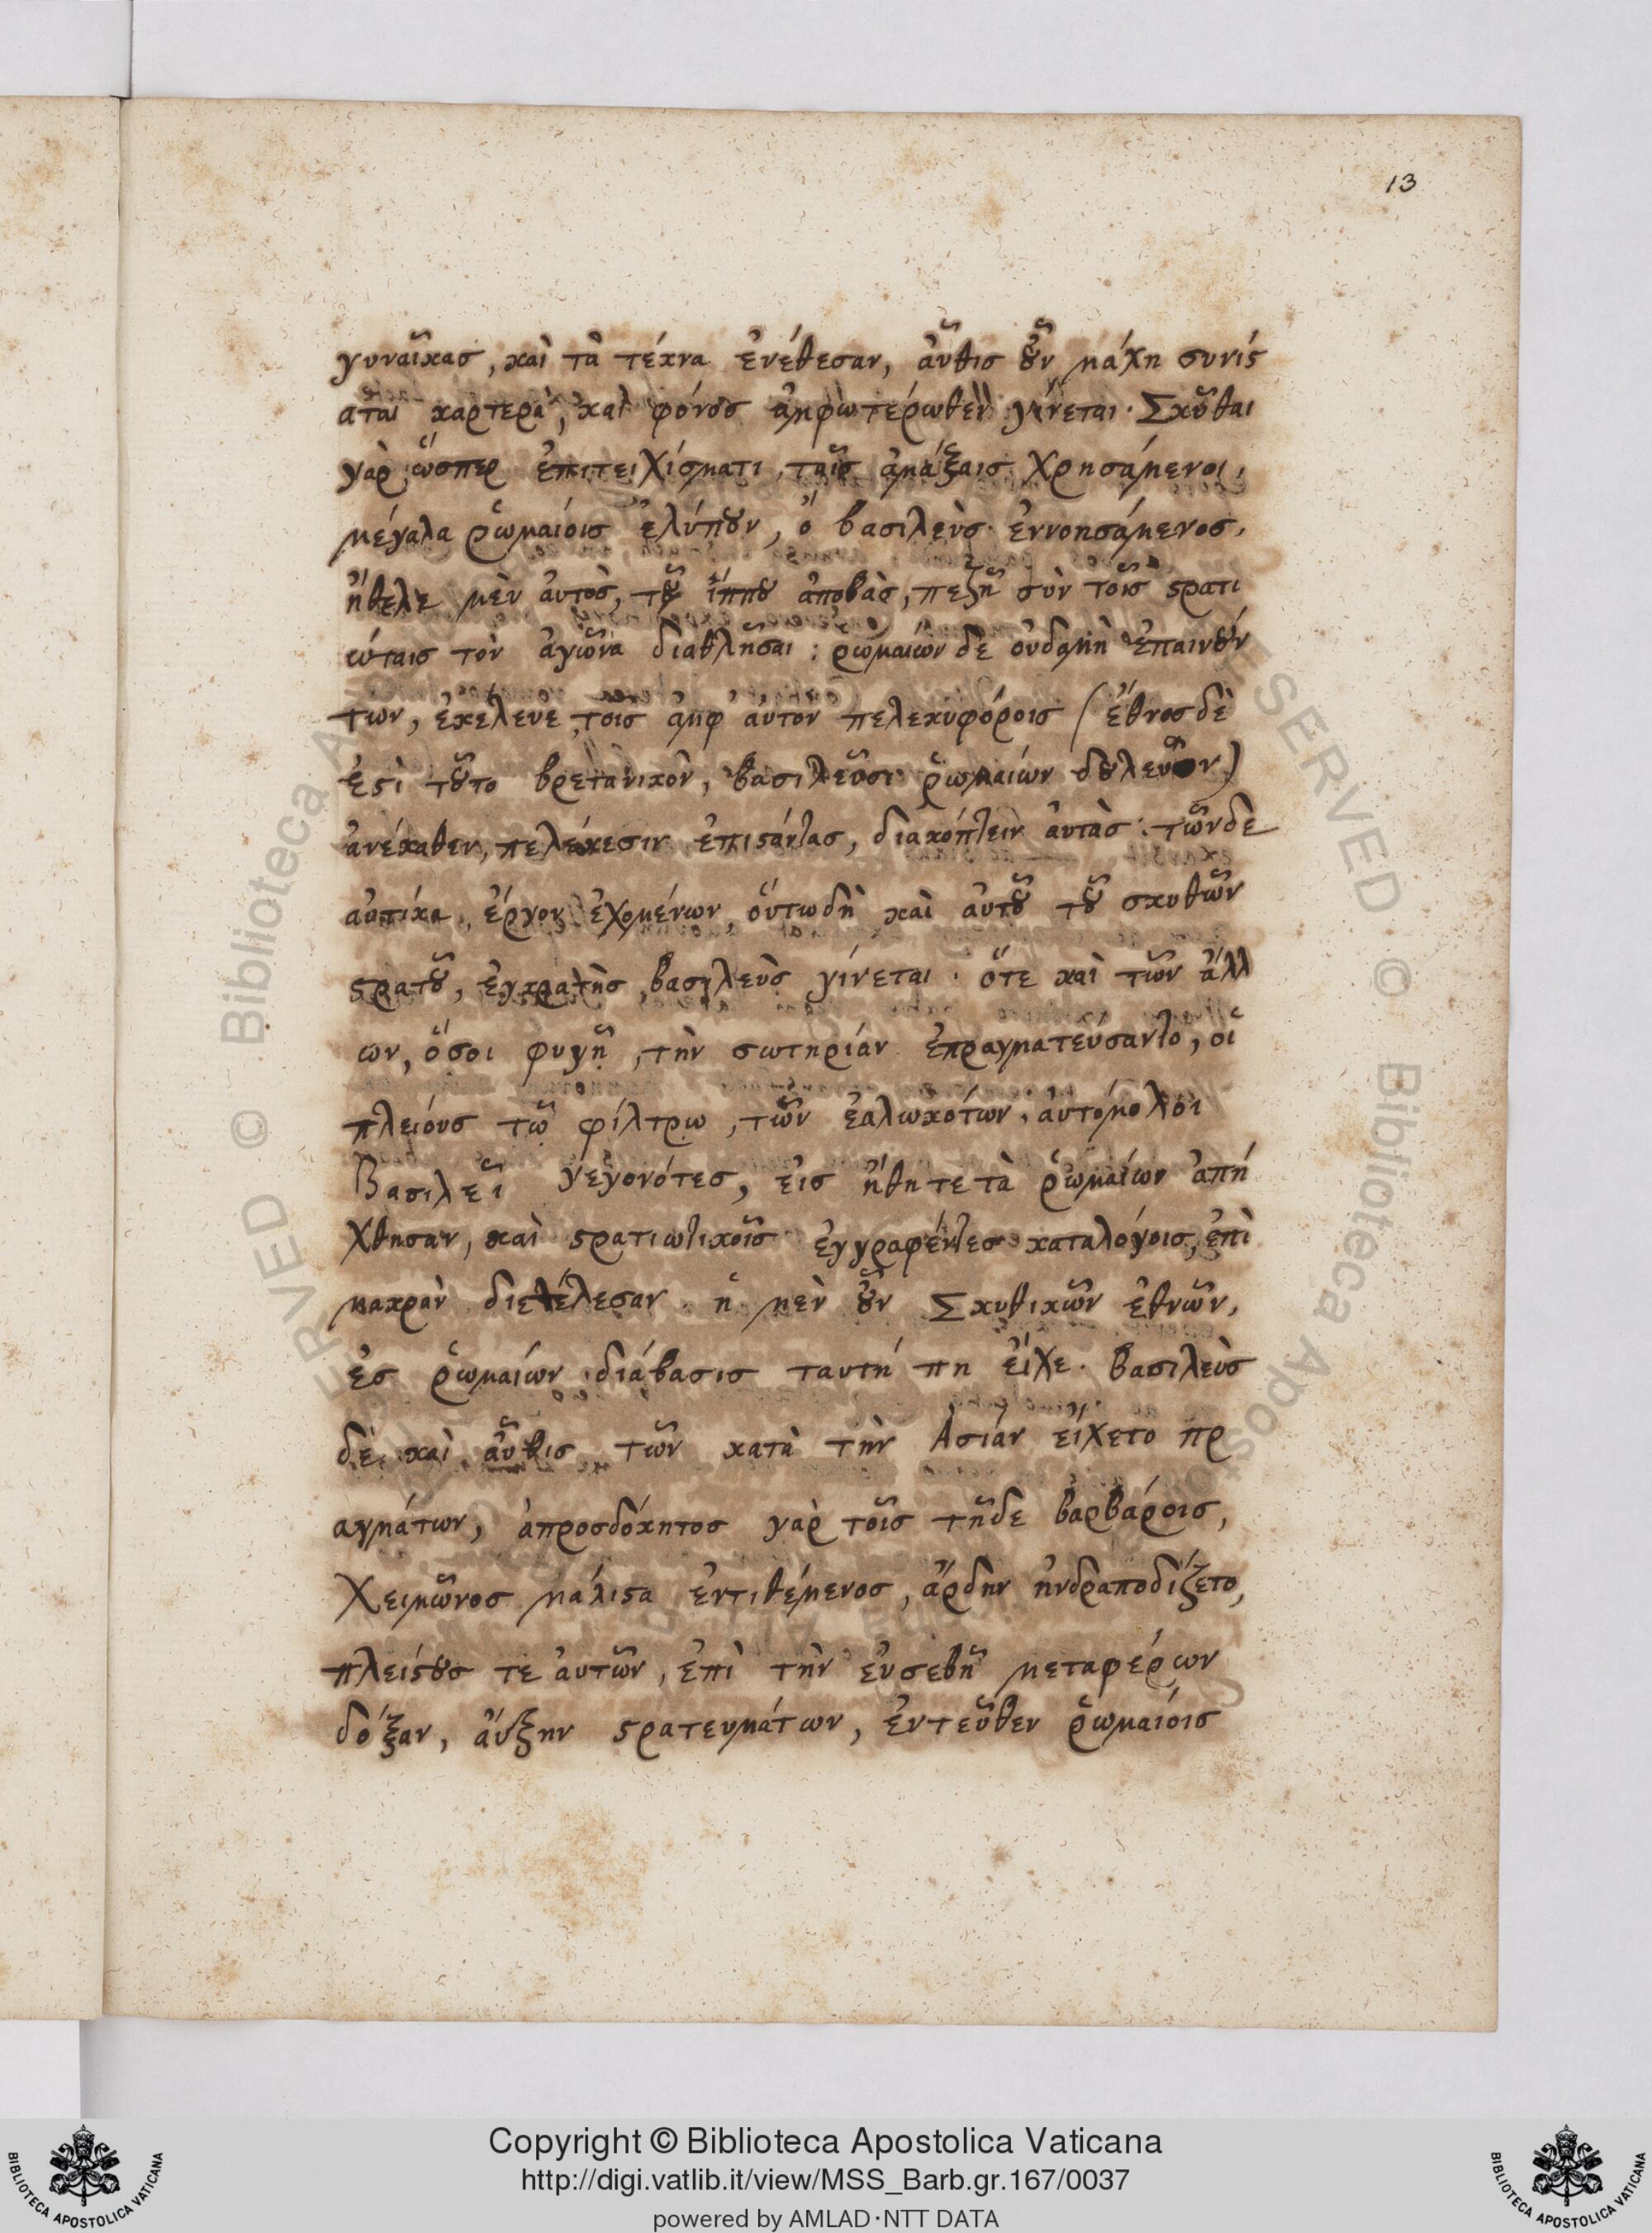 13
γυναῖκας, καὶ τὰ τέκνα ἐνέθεσαν, αὖθις οὖν μάχη συνίς
αται καρτερὰ, καὶ φόνος ἀμφωτέρωθεν γίνεται· Σκῦθαι
γὰρ ὥσπερ ἐπιτειχίσματι ταῖς ἁμάξαις χρησάμενοι,
μέγαλα ῥωμαίοις ἐλύπουν, ὁ βασιλεὺς ἐννοησάμενος,
ἤθελε μὲν ἀυτὸς, τοῦ ἵππου ἀποβὰς, πεζῆ σὺν τοῖς ϛρατι
ώταις τὸν ἀγῶνα διαθλῆσαι: ῥωμαίων δε ὀυδαμὴ ἐπαινούν
των, ἐκέλευε τοῖς ἀμφ ἀυτὸν πελεκυφόροις (ἔθνος δὲ
ἐϛὶ τοῦτο βρετανικὸν, βασιλεῦσι ῥωμαίων δουλεῦον)
ἀνέκαθεν, πελέκεσιν ἐπιϛάντας, διακόπτειν ἀυτὰς· τῶνδε
ἀυτίκα, ἔργον ἐχομένων οὕτωδὴ καὶ ἀυτοῦ τοῦ σκυθῶν
ϛρατοῦ, ἐγκρατὴς βασιλεὺς γίνεται· ὅτε καὶ τῶν ἄλλ
ων, ὅσοι φυγῇ, τὴν σωτηρίαν ἐπραγματεύσαντο, οἱ
πλείους τῷ φίλτρω, τῶν ἑαλωκότων, ἀυτόμολοι
Βασιλεῖ γεγονότες, εἰς ἤθη τε τὰ ῥωμαίων ἀπή
χθησαν, καὶ ϛρατιωτικοῖς ἐγγραφέντες καταλόγοις, ἐπὶ
μακρὰν διετέλεσαν· ἡ μὲν οὖν Σκυθικῶν ἐθνῶν,
ἐς ῥωμαίων διάβασις ταυτή πη εἶχε· βασιλεὺς
δὲ καὶ αὖθις τῶν κατὰ τὴν Ἀσίαν εἴχετο πρ
αγμάτων, ἀπροσδόκητος γὰρ τοῖς τῇδε βαρβάροις,
Χειμῶνος μάλιϛα ἐντιθέμενος, ἄρδην ἠνδραποδίζετο,
πλείϛους τε ἀυτῶν, ἐπὶ τὴν ἐυσεβῆ μεταφέρων
δόξαν, ἄυξην ϛρατευμάτων, ἐντεῦθεν ῥωμαίοις
Copyright © Biblioteca Apostolica Vaticana
http://digi.vatlib.it/view/MSS_Barb.gr.167/0037
powered by AMLAD·NTT DATA